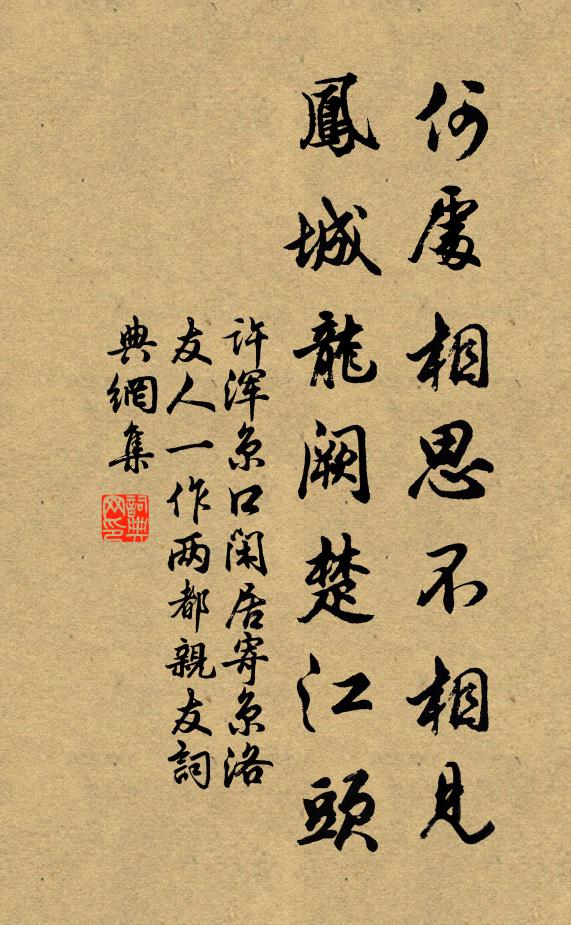 何處相思不相見
鳳城龍闕楚江頭
許渾京口閑居寄京洛
友人一作兩都親友詞
典網集
詞典
网印